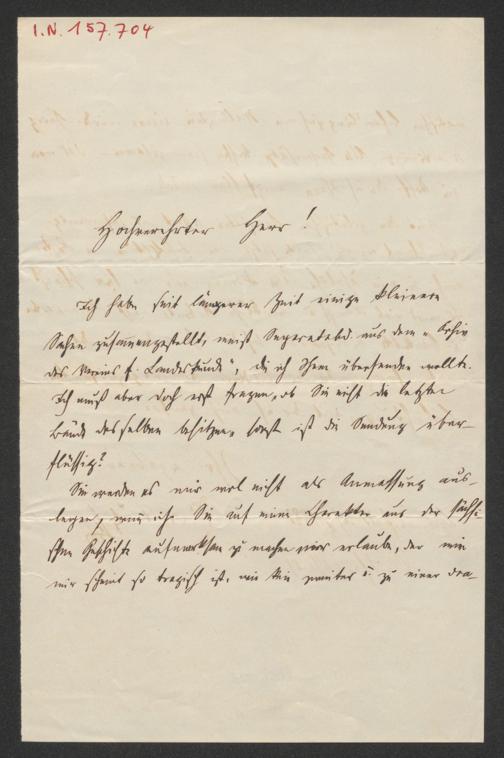 I.N. 157.704
Hochverehrter Herr!
Ich habe seit längerer Zeit einige kleinere
Sachen zusammengestellt, meist Separatabd. aus dem „Archiv
des Vereins f. Landeskunde“, die ich Ihnen übersenden wollte.
Ich muß aber doch erst fragen, ob Sie nicht die letzten
Bände desselben besitzen, sonst ist die Sendung über-
flüssig?
Sie werden es mir wol nicht als Anmassung aus-
legen, wenn ich Sie auf einen Charakter aus der sächsi-
schen Geschichte aufmerksam zu machen mir erlaube, der wie
mir scheint so tragisch ist, wie kein zweiter u. zu einer dra-